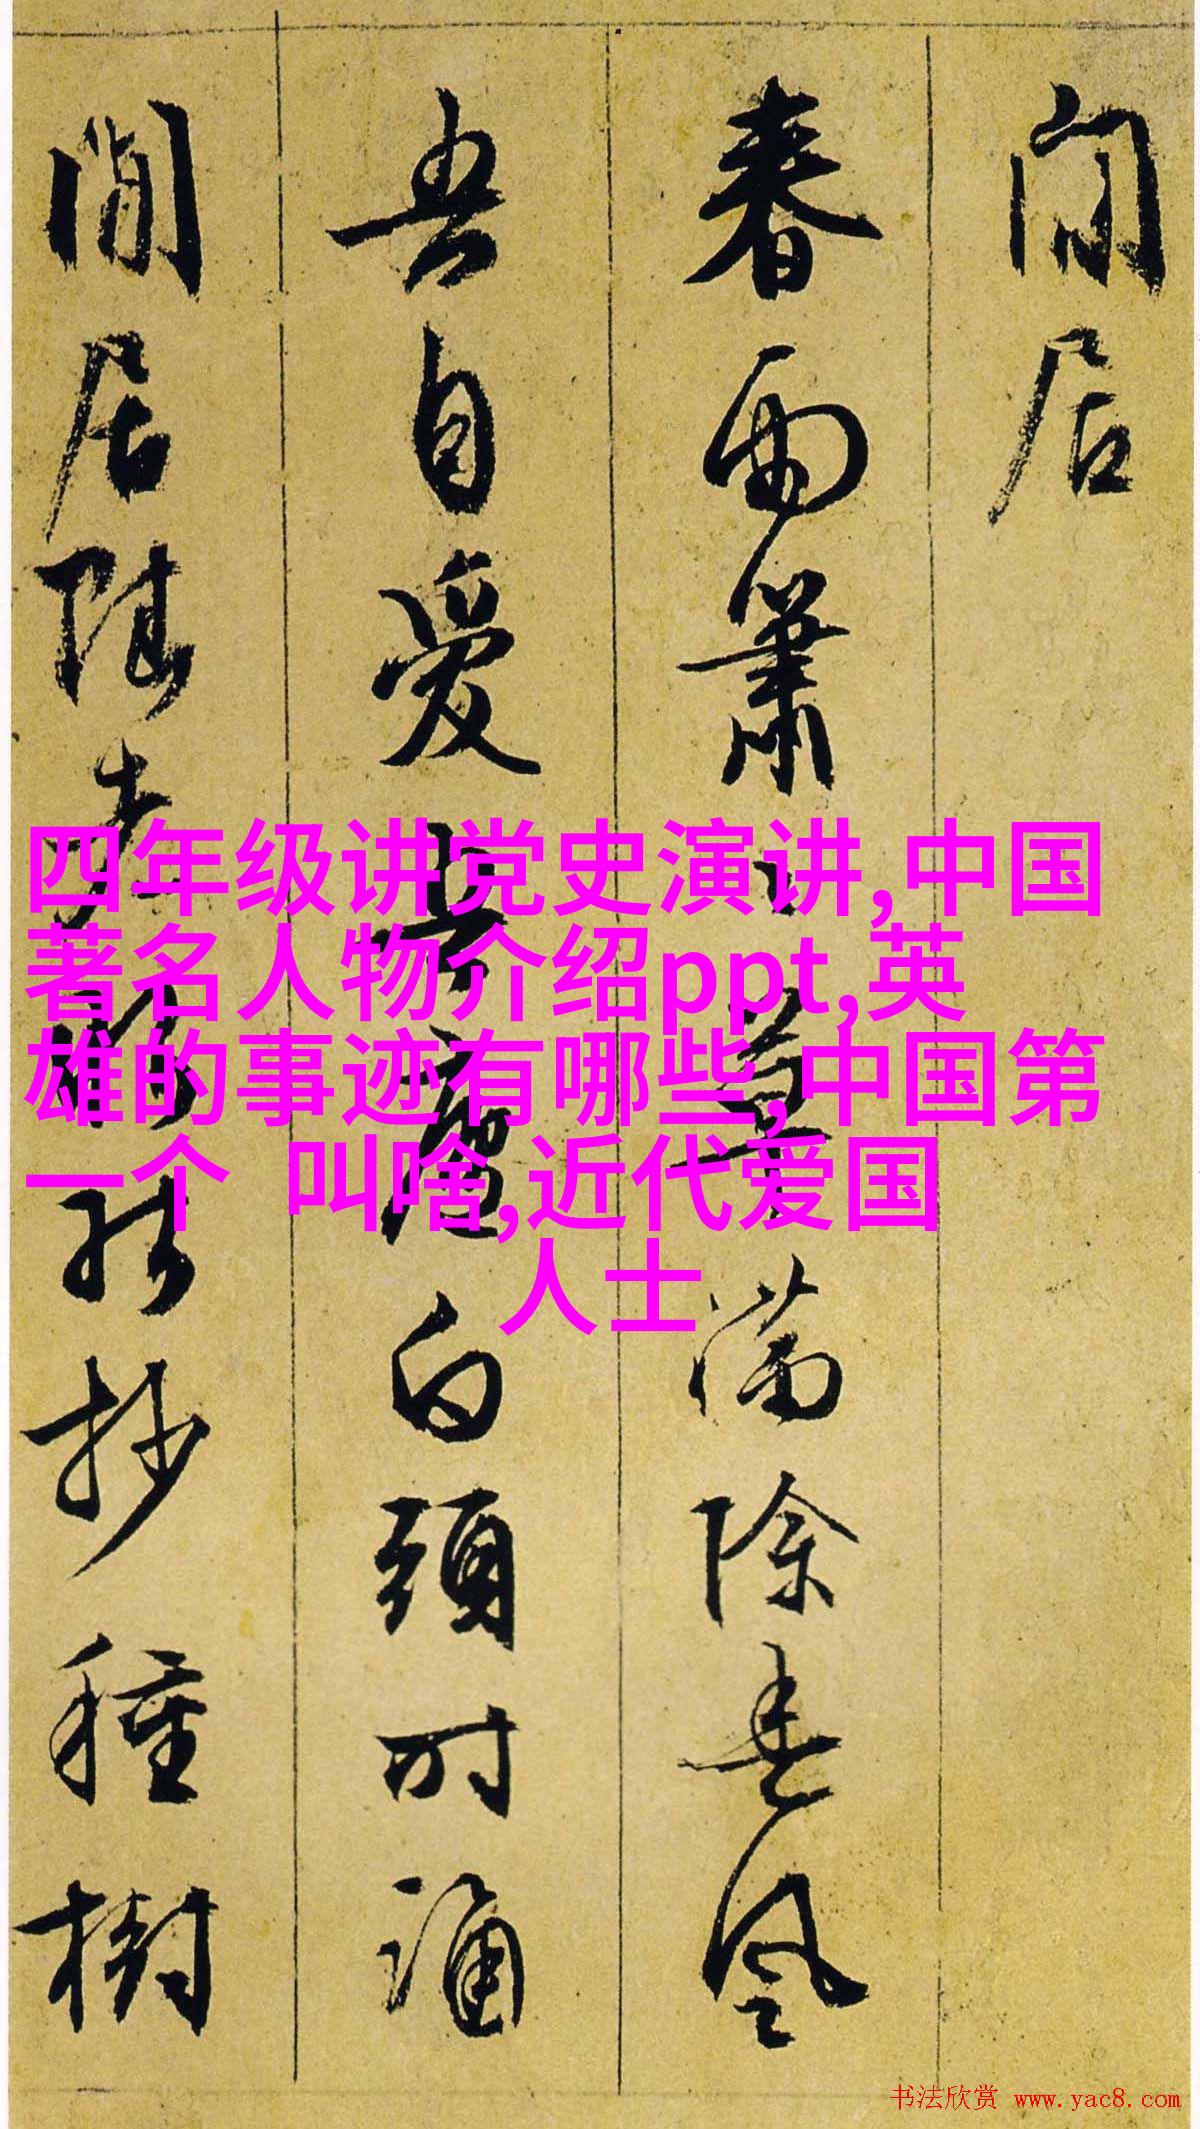 闲居
春雨萧〻草满除春风
吾自爱吾庐白头时诵
闲居赋
抄种树
四年级讲党史演讲,中国
著名人物介绍ppt,英
雄的事迹有哪些,中国第
一个 叫啥,近代爱国
人士
书法欣赏 www.yac8.com